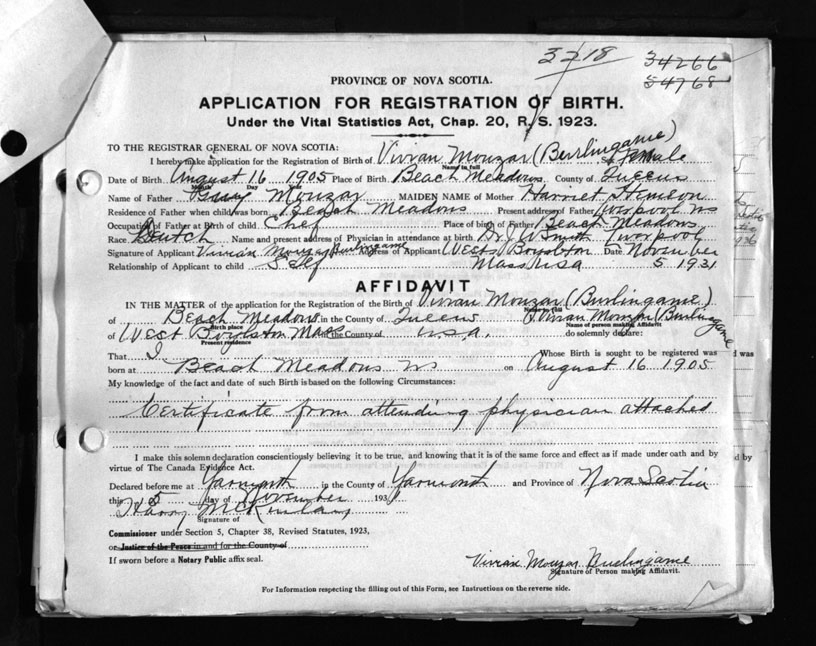 3218
34266
54768
PROVINCE OF NOVA SCOTIA.
APPLICATION FOR REGISTRATION OF BIRTH.
Under the Vital Statistics Act, Chap. 20, R. S. 1923.
TO THE REGISTRAR GENERAL OF NOVA SCOTIA:
I hereby make application for the Registration of Birth of Vivian Mouzar (Burlingame) Sex Female
Name in full
Date of Birth August 16 1905 Place of Birth Beach Meadows County of Queens
Month Day Year
Name of Father Guy Mouzar MAIDEN NAME of Mother Harriet
Residence of Father when child was born Beach Meadows Present address of Father Liverpool NS
Occupation of Father at Birth of child Chef Place of birth of Father Beach Meadows
Race Dutch Name and present address of Physician in attendance at birth Dr J W Smith Liverpool
Signature of Applicant Vivian Mouzar Burlingame Address of Applicant West Boylston Date November
Relationship of Applicant to child Self Mass USA 5 1931
AFFIDAVIT
IN THE MATTER of the application for the Registration of the Birth of Vivian Mouzar (Burlingame)
Name in full
of Beach Meadows in the County of Queens I Vivian Mouzar (Burlingame
Birth place Name of person making Affidavit
of West Boylston Mass in the County of U.S.A. do solemnly declare:
Present residence
That I Whose Birth is sought to be registered was
born at Beach Meadows NS on August 16 1905
My knowledge of the fact and date of such Birth is based on the following Circumstances:
Certificate from attending physician attached
I make this solemn declaration conscientiously believing it to be true, and knowing that it is of the same force and effect as if made under oath and by
virtue of The Canada Evidence Act.
Declared before me at Yarmouth in the County of Yarmouth and Province of Nova Scotia
this 5 day of November 1931
Harry McKinlay
Signature of
Commissioner under Section 5, Chapter 38, Revised Statutes, 1923,
or Justice of the Peace in and for the County of
If sworn before a Notary Public affix seal.
Vivian Mouzar Burlingame
Signature of Person making Affidavit.
For Information respecting the filling out of this Form, see Instructions on the reverse side.
d was
d by